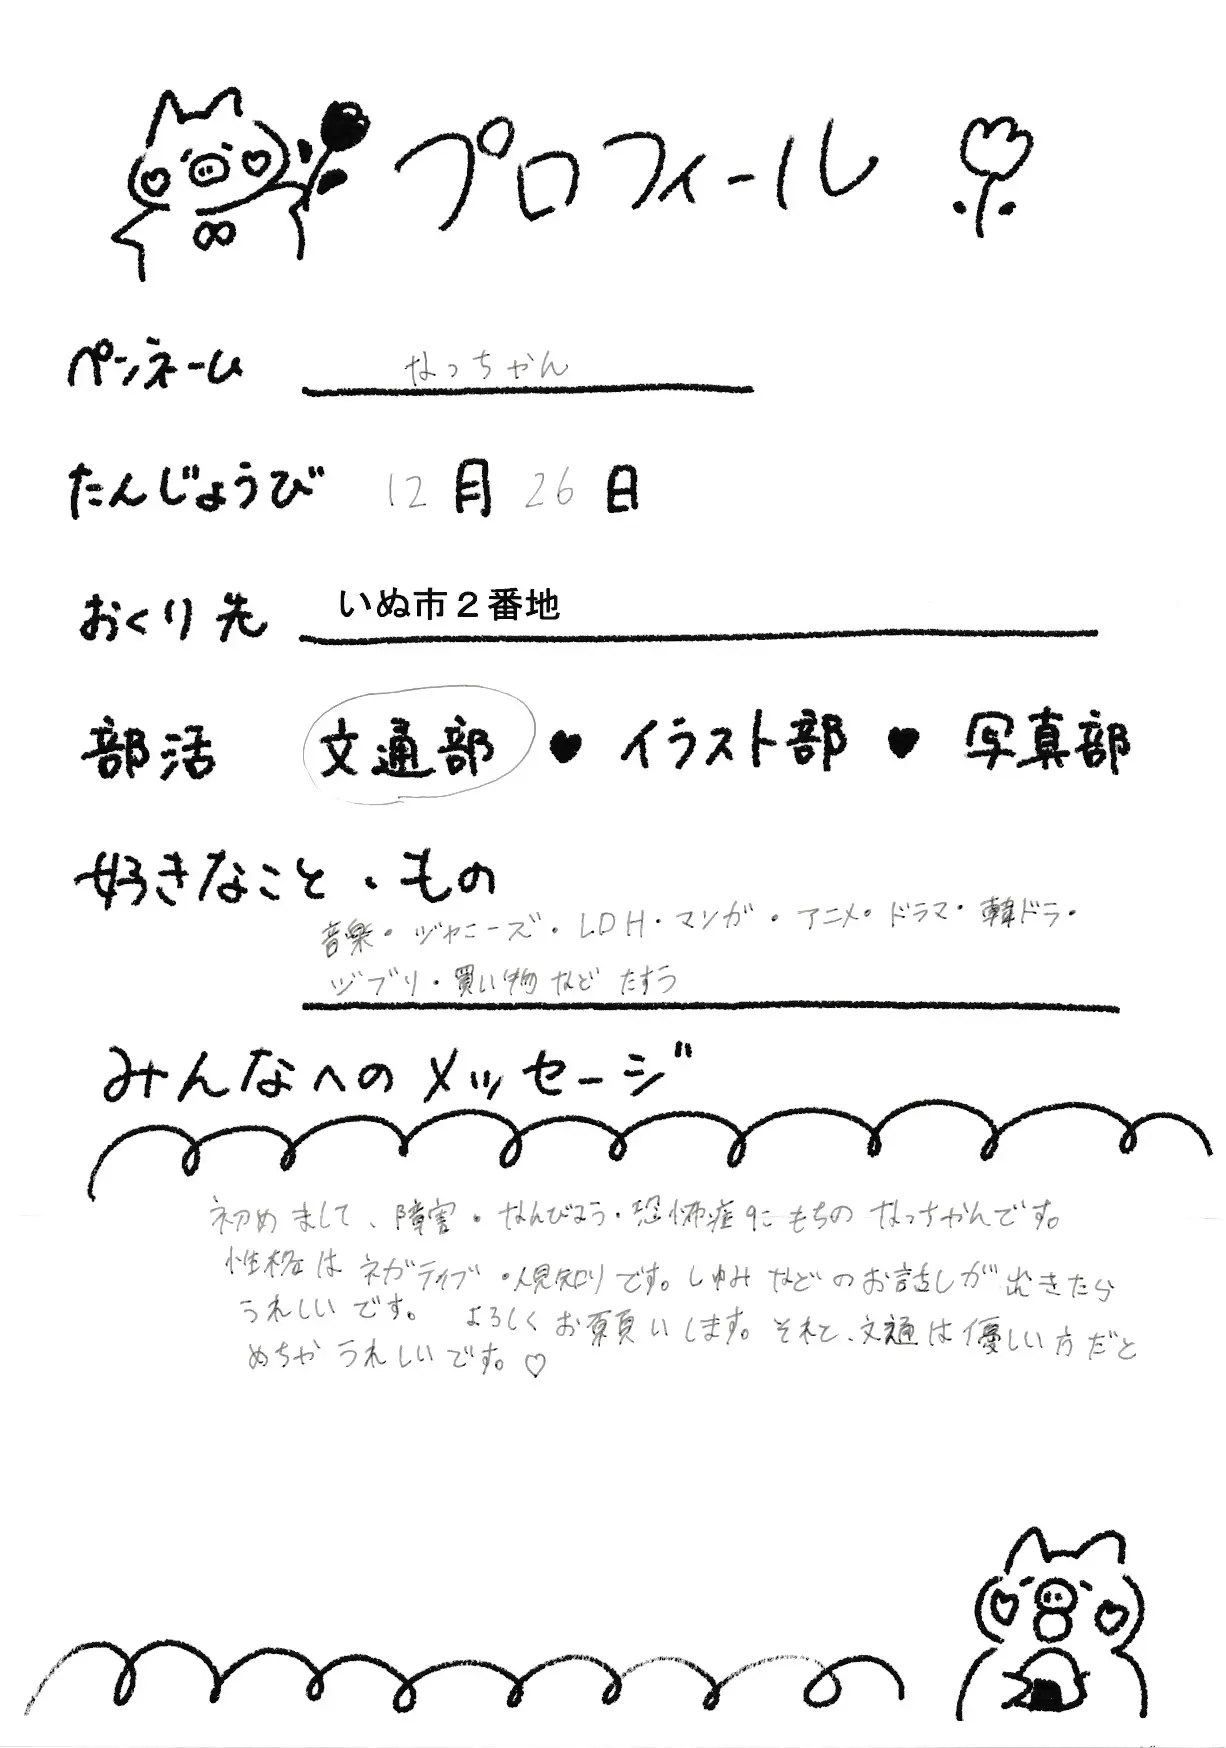 プロフィール
ペンネーム なっちゃん
たんじょうび 12月26日
おくり先 いぬ市２番地
部活 文通部 ♥ イラスト部 ♥ 写真部
好きなこと・もの
音楽・ジャニーズ・LDH・マンガ・アニメ・ドラマ・韓ドラ・
ジブリ・買い物など たすう
みんなへのメッセージ
初めまして、障害・なんびょう・恐怖症 もちの なっちゃんです。
性格は ネガティブ・人見知りです。しゅみ などの お話しが できたら
うれしいです。 よろしく お願いします。それと、文通は優しい方だと
めちゃ うれしいです。♡